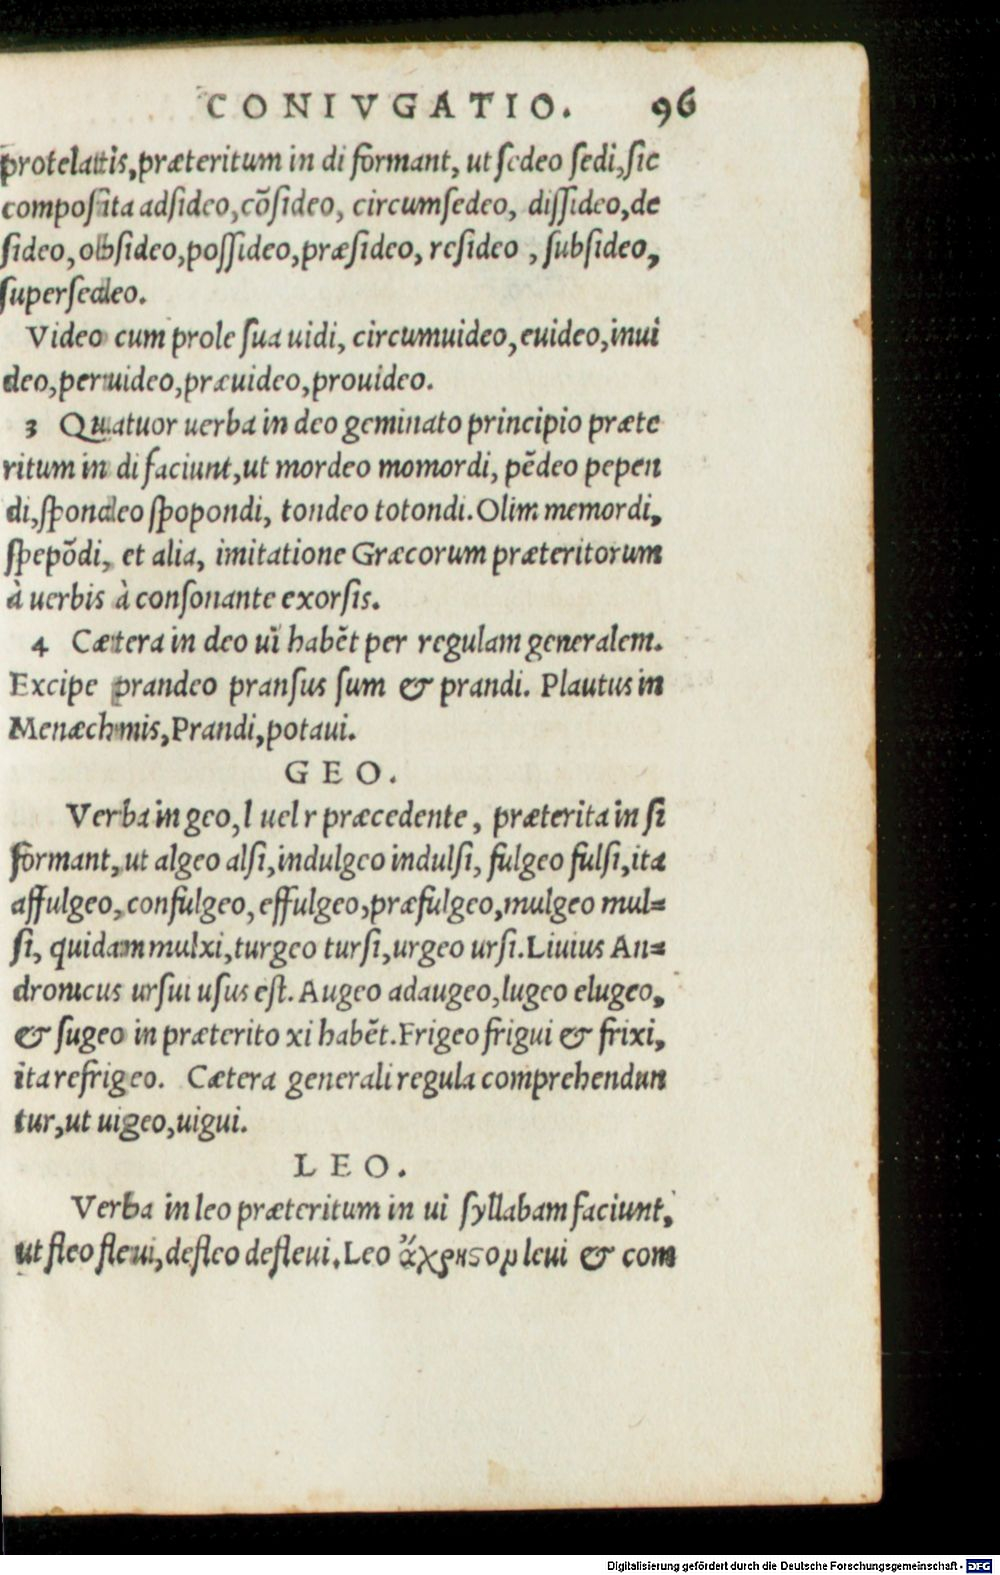 CONIVGATIO. 96
protelatis, præteritum in di formant, ut sedeo sedi, sic
composita adsideo, cõsideo, circumsedeo, dissideo, de
sideo, obsideo, possideo, præsideo, resideo, subsideo,
supersedeo.
Video cum prole sua uidi, circumuideo, euideo, inui
deo, peruideo, præuideo, prouideo.
3 Quatuor uerba in deo geminato principio præte
ritum in di faciunt, ut mordeo momordi, pẽdeo pepen
di, spondeo spopondi, tondeo totondi. Olim memordi,
spepõdi, et alia, imitatione Græcorum præteritorum
à uerbis à consonante exorsis.
4 Cætera in deo uì habẽt per regulam generalem.
Excipe prandeo pransus sum & prandi. Plautus in
Menæchmis, Prandi, potaui.
GEO.
Verba in geo, l uel r præcedente, præterita in si
formant, ut algeo alsi, indulgeo indulsi, fulgeo fulsi, ita
affulgeo, confulgeo, effulgeo, præfulgeo, mulgeo mul=
si, quidam mulxi, turgeo tursi, urgeo ursi. Liuius An=
dronicus ursui usus est. Augeo adaugeo, lugeo elugeo,
& sugeo in præterito xi habẽt. Frigeo frigui & frixi,
ita refrigeo. Cætera generali regula comprehendun
tur, ut uigeo, uigui.
LEO.
Verba in leo præteritum in ui syllabam faciunt,
ut fleo fleui, defleo defleui. Leo ἄχρηστον leui & com
Digitalisierung gefördert durch die Deutsche Forschungsgemeinschaft - DFG